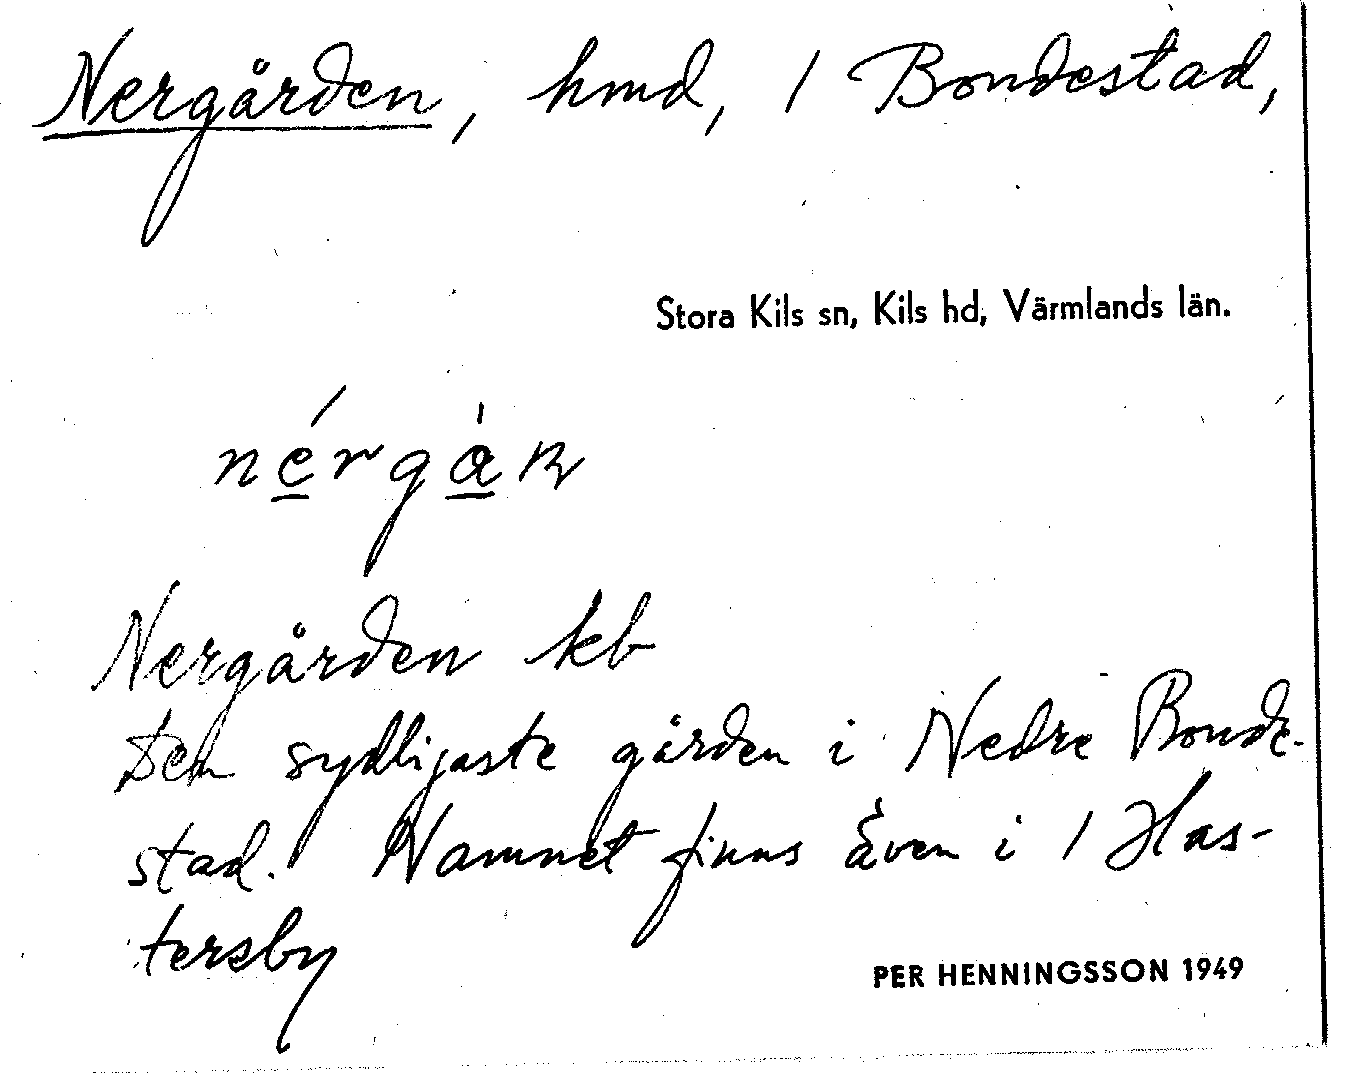 Nergården, hmd, / Bondestad,
Stora Kils sn, Kils hd, Värmlands län.
Nergården kb
Den sydligaste gården i Nedre Bonde-
stad. Namnet finns även i / Has-
tersby
PER HENNINGSSON 1949